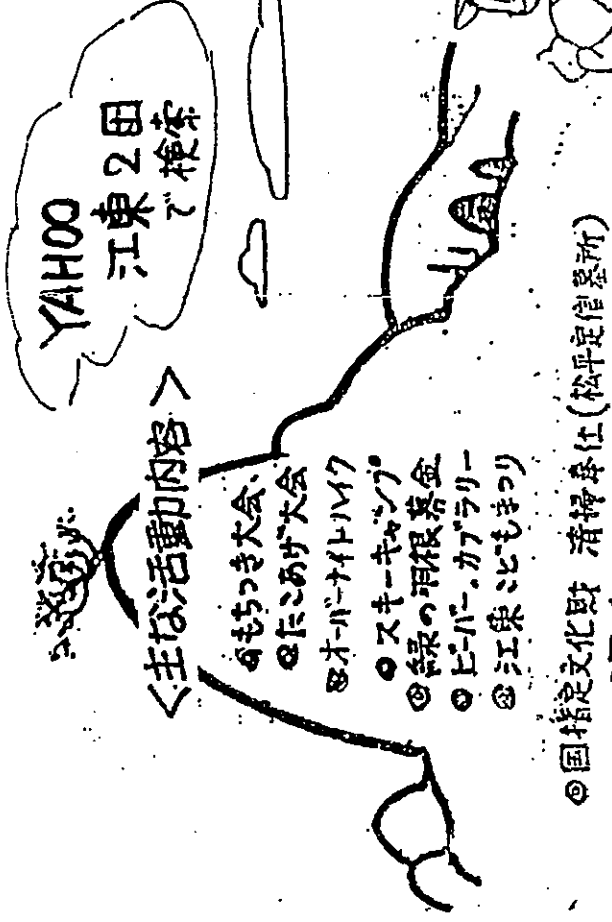 YAHOO
江東2団
で検索
<主な活動内容>
◎もちつき大会、
◎たこあげ大会
◎オーバーナイトハイク
◎スキーキャンプ
◎緑の羽根募金
◎ビーバー、カブラリー
◎江東こどもまつり
◎国指定文化財 清掃奉仕(松平定信墓所)